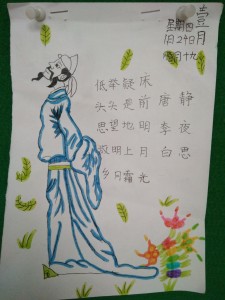 壹月
星期四
1月24日
腊月十九
静夜思
唐李白
床前明月光
疑是地上霜
举头望明月
低头思故乡